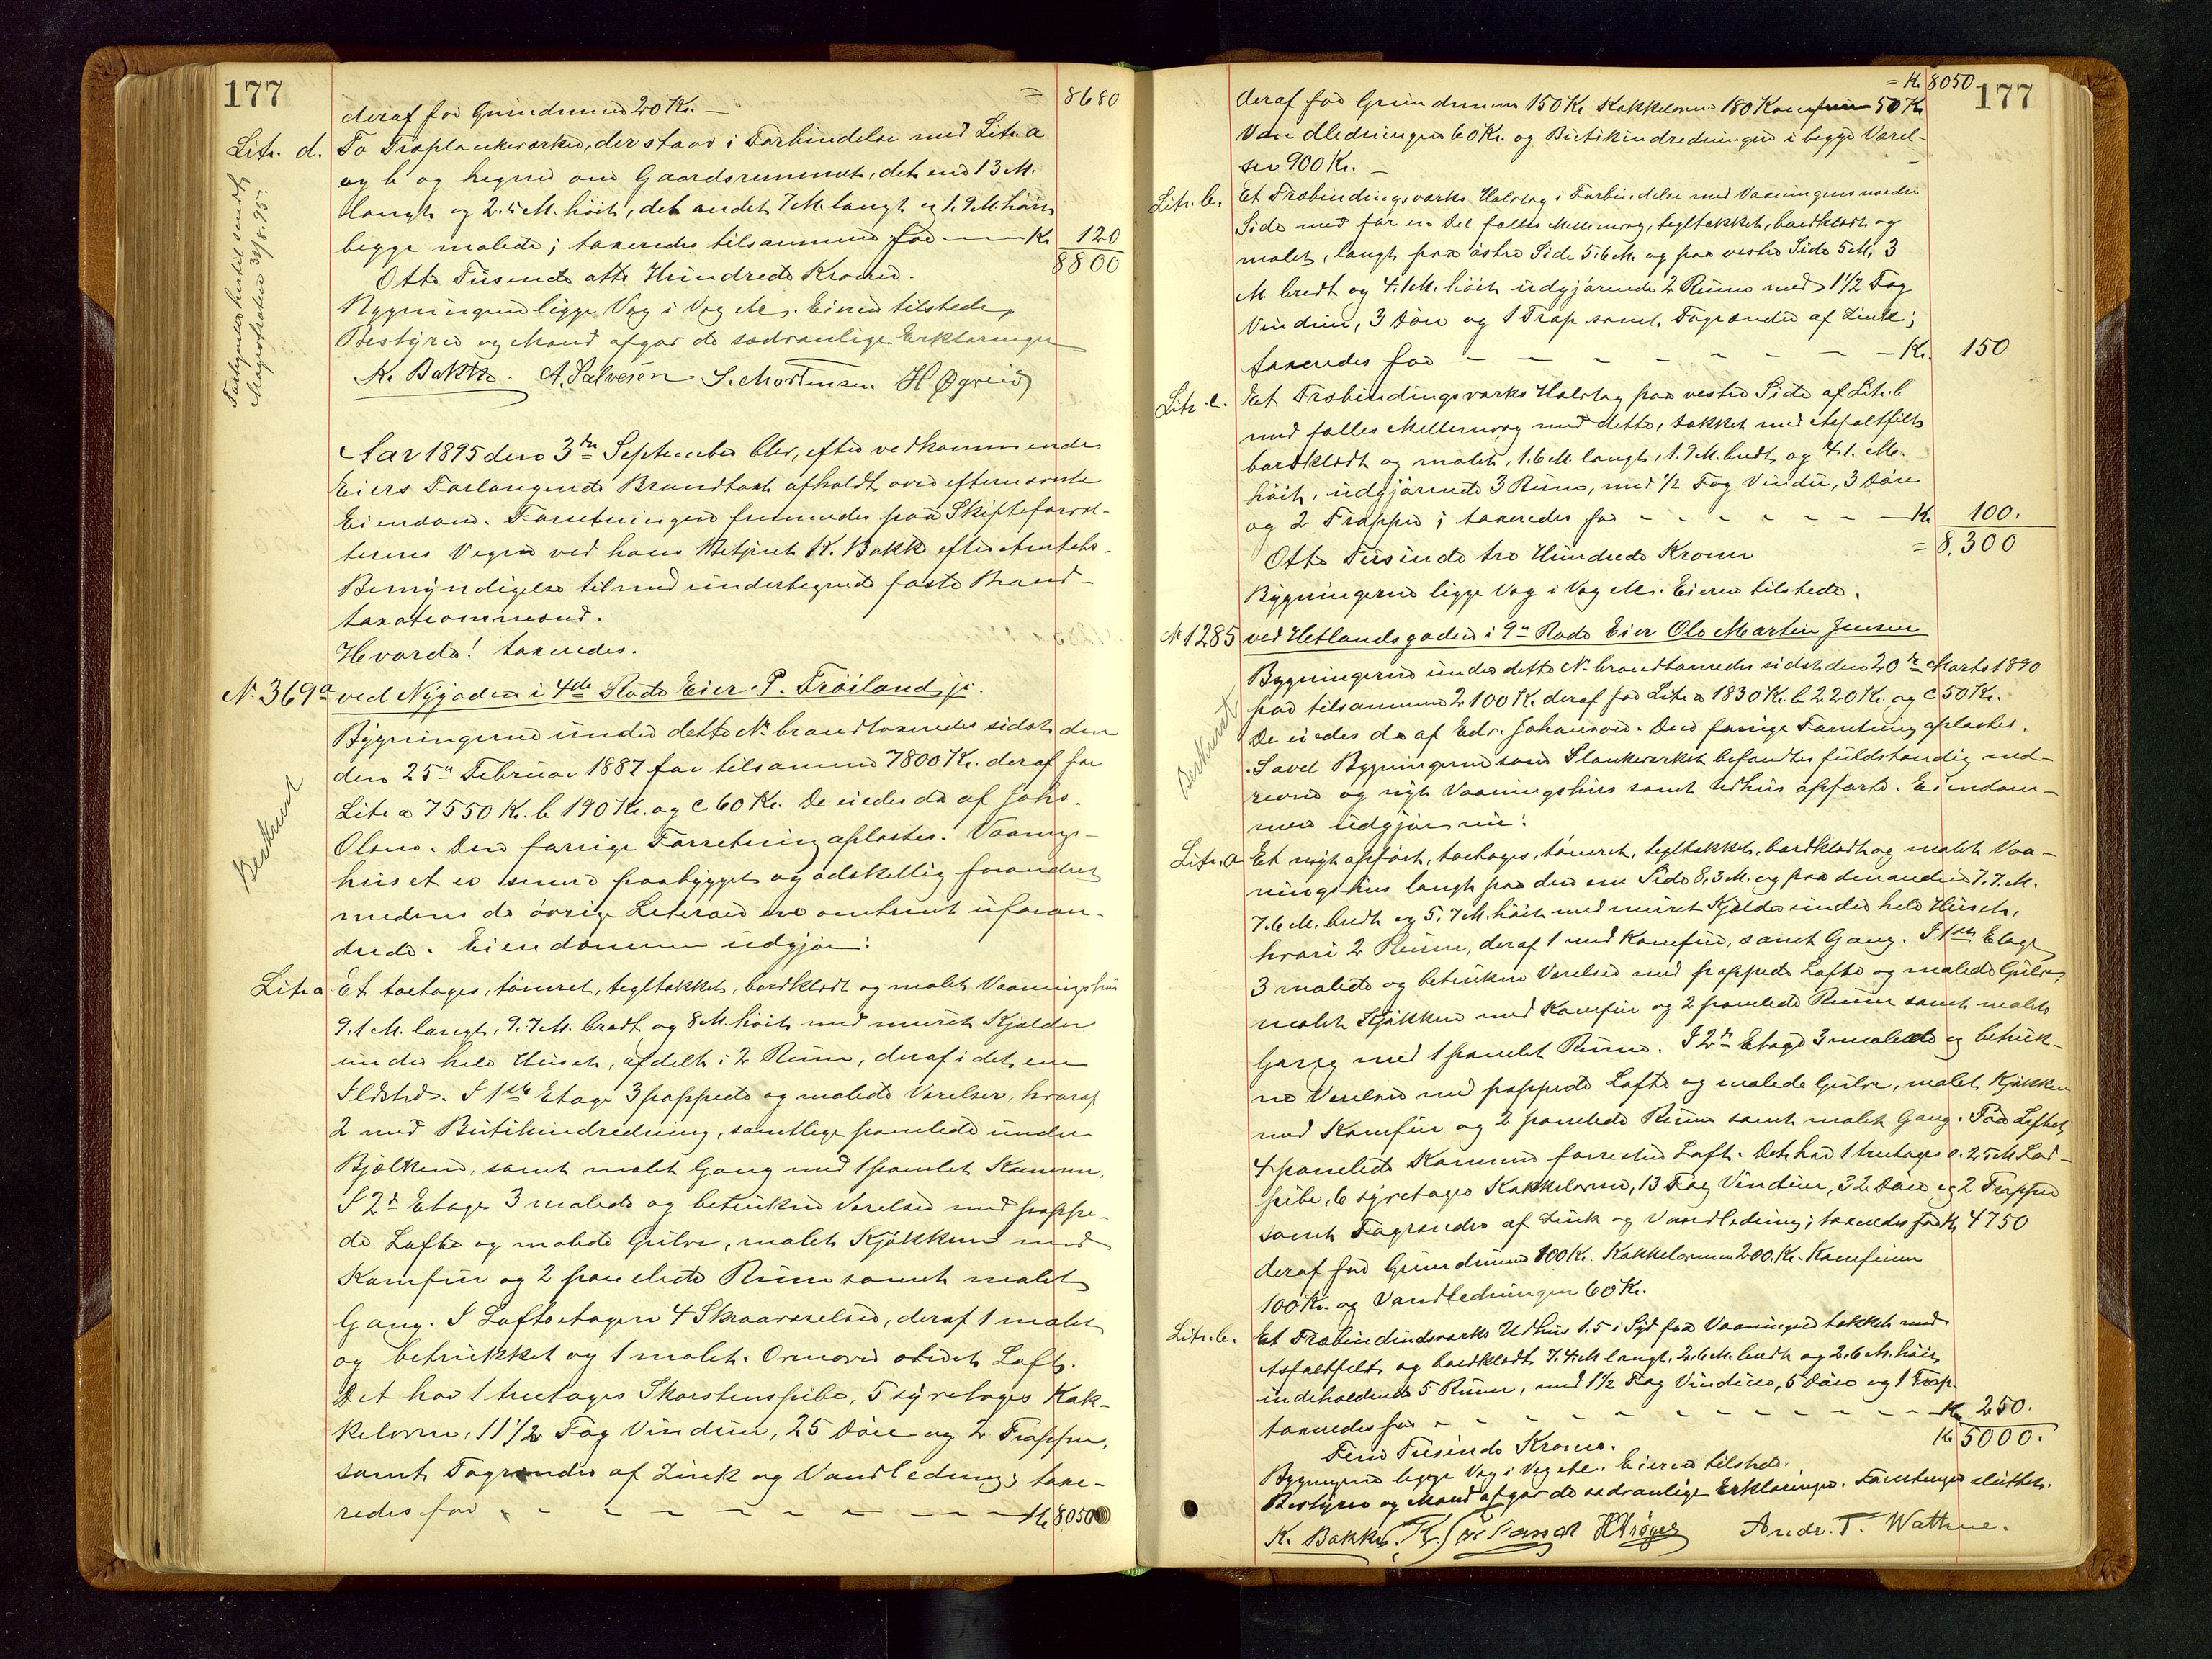 177
= 8680
deraf for Grundmuren 20 Kr. —
Litr. d. To Træplankeværker, der staar i Forbindelse med Litr. a
og b og hegner om Gaardsrummet, det ene 13 M.
langt og 2.5 M. höit, det andet 7 M. langt og 1.9 M. höit
begge malede; taxeredes tilsammen for — Kr. 120
8800
Otte Tusinde otte Hundrede Kroner.
Bygningerne ligge Væg i Væg etc. Eieren tilstede,
Bestyrer og Mænd afgav de sædvanlige Erklæringer
K. Bakke. A. Salvesen S. Mortensen. H Øgreid
Fortegnelse hertil sendt
Magistraten 31/8 95.
Aar 1895 den 3die September blev, efter vedkommende
Eiers Forlangende Brandtaxt afholdt over efternævnte
Eiendom. Forretningen fremmedes paa Skifteforval-
terens Vegne ved hans Betjent K. Bakke efter Amtets
Bemyndigelse tilmed undertegnede faste Brand-
taxationsmænd.
Hvorda! taxeredes.
No. 369a ved Nygaden i 4de Rode Eier P. Tröiland jr.
Bygningerne under dette No. brandtaxeredes sidst den
den 25de Februar 1887 for tilsammen 7800 Kr. deraf for
Litr a 7550 Kr. b 190 Kr. og c. 60 Kr. De eiedes da af Johs.
Olsen. Den forrige Forretning oplæstes. Vaanings-
huset er senere paabygget og adskillig forandret
medens de övrige Literaer ere omtrent uforan-
drede. Eiendommen udgjör:
Beskrevet
Litr a Et toetages, tömret, tegltækket, bordklædt og malet Vaaningshus
9.1 M. langt, 9.7 M. bredt og 8 M. höit med muret Kjælder
under hele Huset, afdelt i 2 Rum, deraf i det ene
Ildsted. I 1ste Etage 3 pappede og malede Værelser, hvoraf
2 med Butikindredning, samtlige panelede under
Bjælkerne, samt malet Gang med 1 panelet Kammer.
I 2den Etage 3 malede og betrukne Værelser med pappe-
de Lofte og malede Gulve, malet Kjökken med
Komfur og 2 panelede Rum samt malet
Gang. I Loftsetagen 4 Skraaværelser, deraf 1 malet
og betrukket og 1 malet. Ovenover överst Loft.
Det har 1 treetages Skorstenspibe, 5 syvetages Kak-
kelovne, 11 1/2 Fag Vinduer, 25 Döre og 2 Trapper,
samt Tagrender af Zink og Vandledning; taxe-
redes for — Kr. 8050
= Kr. 8050
177
deraf for Grundmuren 150 Kr. Kakkelovne 180 Komfuren 50 Kr.
Vandledningen 60 Kr. og Butikindredningen i begge Værel-
ser 900 Kr. —
Litr. b. Et Træbindingsværks Halvtag i Forbindelse med Vaaningens nordre
Side med for en Del fælles Mellemvæg, tegltækket, bordklædt og
malet, langt paa östre Side 5.6 M. og paa vestre Side 5 M. 3
M. bredt og 4.1 M. höit udgjörende 2 Rum med 1 1/2 Fag
Vinduer, 3 Döre og 1 Trap samt Tagrender af Zink;
taxeredes for — Kr. 150
Litr. c. Et Træbindingsværks Halvtag paa vestre Side af Litr. b
med fælles Mellemvæg med dette, tækket med Asfaltfilt
bordklædt og malet, 1.6 M. langt, 1.9 M. bredt og 4.1. M.
höit, udgjörende 3 Rum, med 1/2 Fag Vindu, 3 Döre
og 2 Trapper; taxeredes for — Kr. 100.
Otte Tusinde tre Hundrede Kroner = 8,300
Bygningerne ligge Væg i Væg etc. Eieren tilstede.
No 1285 ved Hetlandsgaden i 9de Rode Eier Ole Martin Jensen
Bygningerne under dette No. brandtaxeredes sidst den 20de Marts 1890
for tilsammen 2100 Kr. deraf for Litr a 1830 Kr. b 220 Kr. og c 50 Kr.
De eiedes da af Edv. Johansen. Den forrige Forretning oplæstes.
Savel Bygningerne som Plankeværket befandtes fuldstændig ned-
revne og nyt Vaaningshus samt Udhus opförte. Eiendom-
men udgjör nu:
Beskrevet
Litr. a Et nyt opfört, toetages, tömret, tegltækket, bordklædt og malet Vaa-
ningshus langt paa den ene Side 8,3 M. og paa den anden 7.7. M.
7.6 M. bredt og 5.7 M. höit med muret Kjælder under hele Huset,
hvori 2 Rum, deraf 1 med Komfur, samt Gang. I 1ste Etage
3 malede og betrukne Værelser med pappede Lofte og malede Gulve,
malet Kjökken med Komfur og 2 panelede Rum samt malet
Gang med 1 panelet Rum. I 2den Etage 3 malede og betruk-
ne Værelser med pappede Lofte og malede Gulve, malet Kjökken
med Komfur og 2 panelede Rum samt malet Gang. Paa Loftet
4 panelede Kamre forresten Loft. Det har 1 treetages
pibe, 6 syvetages Kakkelovne, 13 Fag Vinduer, 32 Döre og 2 Trapper
samt Tagrender af Zink og Vandledning; taxeredes for Kr. 4750
deraf for Grundmuren 100 Kr. Kakkelovnene 200. Kr. Komfurene
100 Kr. og Vandledningen 60 Kr.
Litr. b. Et Træbindindsværks Udhus 1.5 i Syd for Vaaningen tækket med
Asfaltfilt og bordklædt 7.4 M langt, 2.6 M. bredt og 2.6 M. höit,
indeholdende 5 Rum, med 1 1/2 Fag Vinduer, 5 Döre og 1 Trap.
taxeredes for — Kr. 250.
Fem Tusinde Kroner. Kr. 5000.
Bygningerne ligge Væg i Væg etc. Eieren tilstede.
Bestyrer og Mænd afgav de sædvanlige Erklæringer. Forretningen sluttet.
K. Bakke. Andr. T. Wathne.